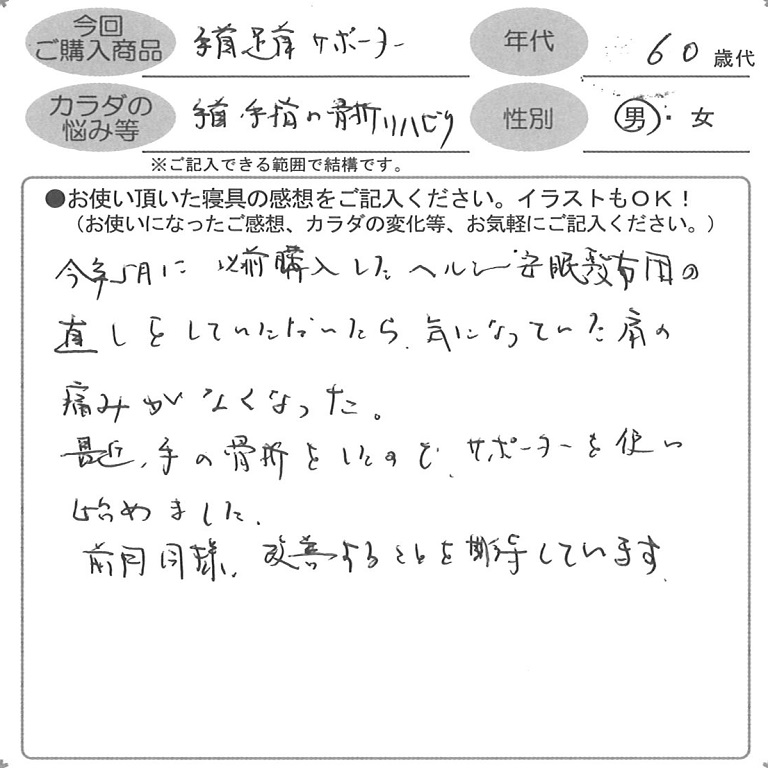 今回
ご購入商品
手首足首サポーター
年代
60歳代
カラダの
悩み等
手首、手指の骨折リハビリ
性別
男・女
※ご記入できる範囲で結構です。
●お使い頂いた寝具の感想をご記入ください。イラストもOK！
（お使いになったご感想、カラダの変化等、お気軽にご記入ください。）
今年5月に 以前購入したヘルシー安眠敷布団の
直しをしていただいたら、気になっていた肩の
痛みがなくなった。
最近、手の骨折をしたので、サポーターを使い
始めました。
前回同様、改善することを期待しています。